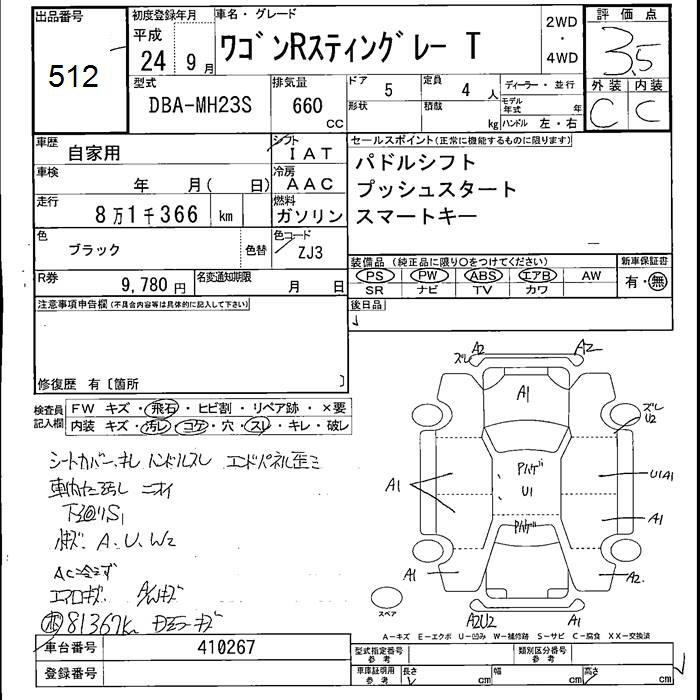 出品番号
512
初度登録年月
平成
24年 9月
車名・グレード
ワゴンRスティングレー T
2WD
・
4WD
評価点
3.5
外装 内装
C C
型式
DBA-MH23S
排気量
660
CC
ドア 5
定員 4 人
形状
積載
kg
ディーラー・並行
モデル年式 年
ハンドル 左・右
車歴 自家用
シフト IAT
車検 年 月( 日)
冷房 AAC
走行 8万1千366 km
燃料 ガソリン
色 ブラック
色替
色コード ZJ3
R券 9,780円
名変通知期限 月 日
セールスポイント(正常に機能するものに限ります)
パドルシフト
プッシュスタート
スマートキー
装備品(純正品に限り○をつけてください)
PS PW ABS エアB AW
SR ナビ TV カワ
新車保証書
有・無
後日品
注意事項申告欄(不具合内容等は具体的に記入して下さい)
修復歴 有〔箇所 〕
検査員記入欄
FW キズ・飛石・ヒビ割・リペア跡・×要
内装 キズ・汚レ・コゲ・穴・スレ・キレ・破レ
シートカバー、キレ ハンドルスレ エンドパネル歪ミ
車内 汚レ ニオイ
下廻りS1
A.U.W2
AC冷えず
エアロキズ
81367k ドアミラーキズ
ズレ A2 A2
A1
ズレ
U2
Pハゲ
U1
A1
U1A1
A1
Pハゲ
A1
A2
A2U2 A1
スペア
A-キズ E-エクボ U-凹み W-補修跡 S-サビ C-腐食 XX-交換済
車台番号 410267
登録番号
型式指定番号
参考
類別区分番号
参考
車庫証明用
参考
長さ cm
幅 cm
高さ cm